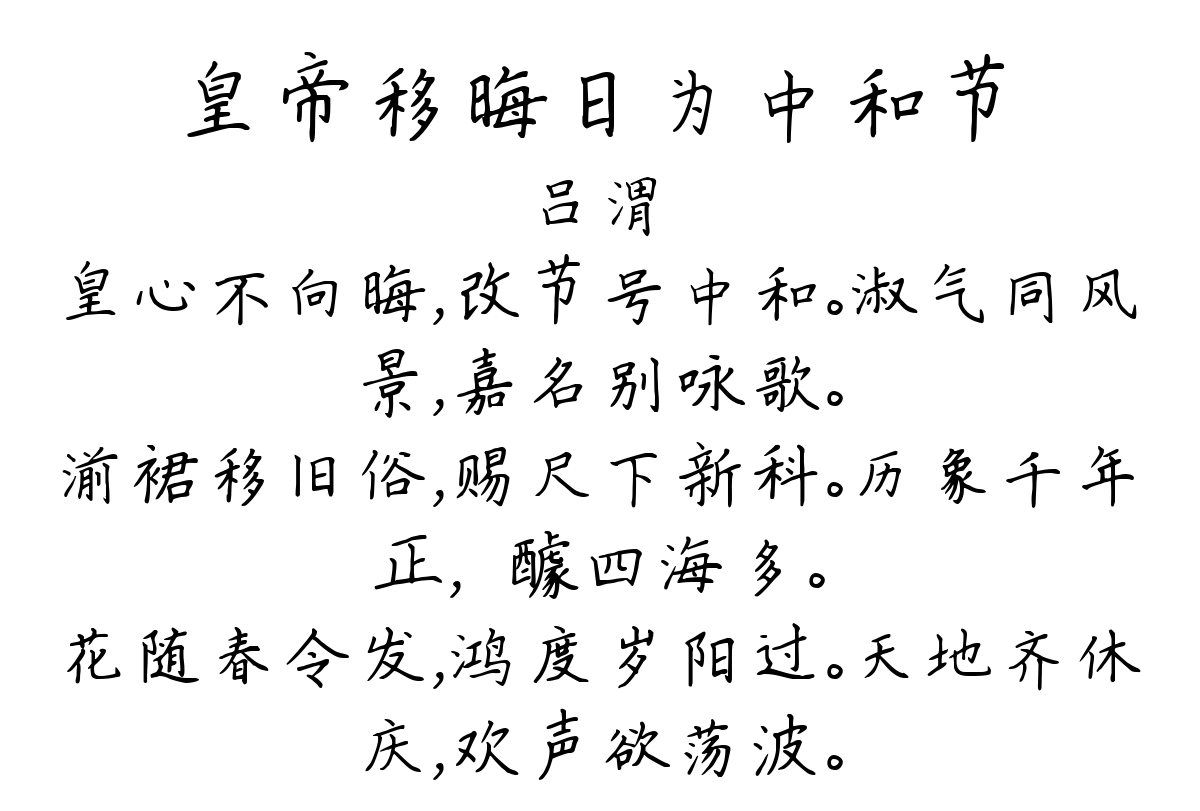 皇帝移晦日为中和节
吕渭
皇心不向晦,改节号中和。淑气同风
景,嘉名别咏歌。
湔裙移旧俗,赐尺下新科。历象千年
正，醵四海多。
花随春令发,鸿度岁阳过。天地齐休
庆,欢声欲荡波。